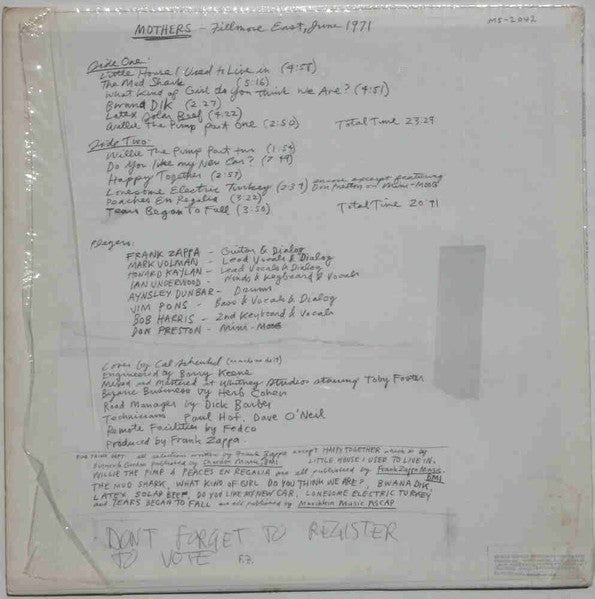 MOTHERS — Fillmore East, June 1971
MS-2042
Side One:
Little House I Used to Live in (4:58)
The Mud Shark (5:16)
What Kind of Girl do you Think We Are? (4:51)
Bwana Dik (2:27)
Latex Solar Beef (4:22)
Willie The Pump part one (2:50) Total Time 23:29
Side Two:
Willie The Pump Part two (1:54)
Do You like my New Car? (7:49)
Happy Together (2:57)
Lonesome Electric Turkey (2:34) encore excerpt featuring Don Preston on Mini-Moog
Peaches En Regalia (3:22)
Tears Began To Fall (3:50) Total Time 20:41
Players:
FRANK ZAPPA - Guitar & Dialog
MARK VOLMAN - Lead Vocals & Dialog
HOWARD KAYLAN - Lead Vocals & Dialog
IAN UNDERWOOD - Winds & Keyboard & Vocals
AYNSLEY DUNBAR - Drums
JIM PONS - Bass & Vocals & Dialog
BOB HARRIS - 2nd Keyboard & Vocals
DON PRESTON - Mini-Moog
Cover by Cal Schenkel
Engineered by Barry Keene
Mixed and Mastered at Whitney Studios starring Toby Foster
Bizarre Business by Herb Cohen
Road Manager by Dick Barber
Technicians Paul Hof Dave O'Neil
Remote Facilities by Fedco
Produced by Frank Zappa
all selections written by Frank Zappa except HAPPY TOGETHER which is by
published by Chardon Music, BMI. LITTLE HOUSE I USED TO LIVE IN,
WILLIE THE PIMP & PEACES EN REGALIA are all published by Frank Zappa Music, BMI
THE MUD SHARK, WHAT KIND OF GIRL DO YOU THINK WE ARE?, BWANA DIK,
LATEX SOLAR BEEF, DO YOU LIKE MY NEW CAR, LONESOME ELECTRIC TURKEY
and TEARS BEGAN TO FALL are all published by Music ASCAP
DON'T FORGET TO REGISTER
TO VOTE F.Z.